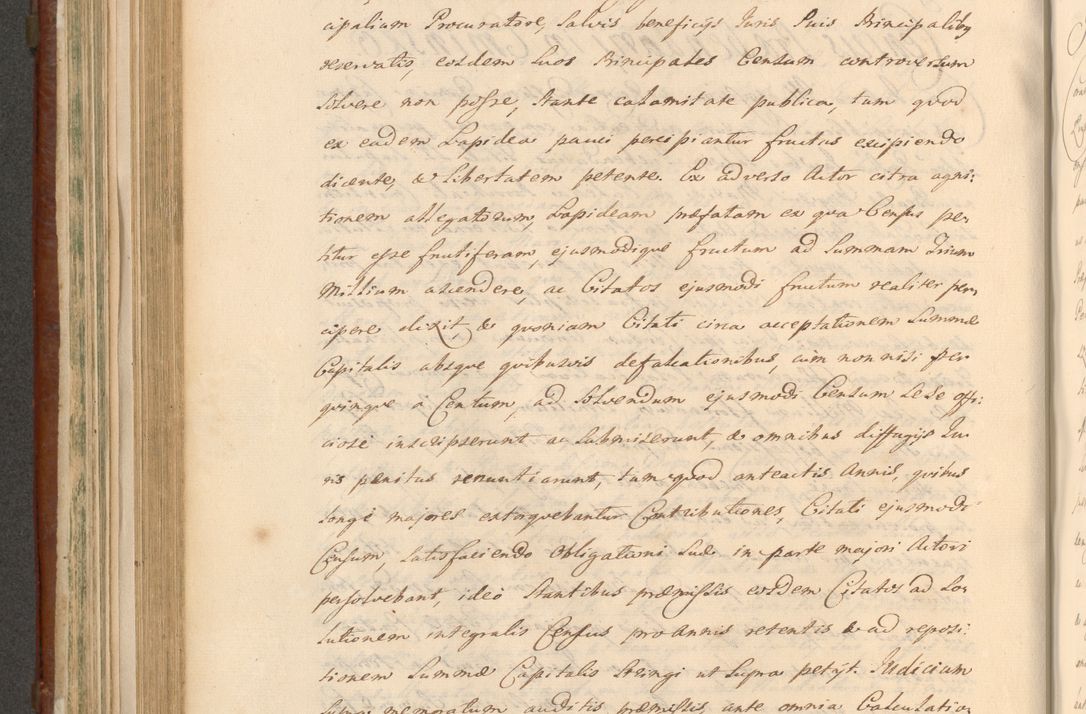 cipalium Procuratore, Salvis beneficijs Juris Suis Principalibq
reservatis, eosdem Suos Principales Censum controversum
Solvere non posse, Stante calamitate publica, tum quod
ex eadem Lapidea pauci percipiantur fructus excipiendo
dicente, & Libertatem petente. Ex adverso Actor citra agni:
tionem allegatorum, Lapideam præfatam ex qua Census pe:
titur esse frutiferam, ejusmodique fructum ad Summam Trium
Millium ascendere, ac Citatos ejusmodi fructum realiter per:
cipere dixit, & quoniam Citati circa acceptationem Summæ
Capitalis absque quibusvis defalcationibus, cum non nisi per
quinque à Centum, ad Solvendum ejusmodi Censum Se Se offi:
ciose inscripserunt ac Submiserunt, & omnibus diffugijs Ju:
ris penitus renuntiarunt, tum quod anteactis Annis, quibus
longè majores extorquebantur Contributiones, Citati ejusmodi
Censum, Satisfaciendo Obligationi Suæ in parte majori Actori
persolvebant, ideò Stantibus præmissis eosdem Citatos ad So:
lutionem integralis Census pro Annis retentis & ad reposi:
tionem Summæ Capitalis Stringi ut Supra petijt. Judicium
memoratum auditis præmissis, ante omnia Calculatio: